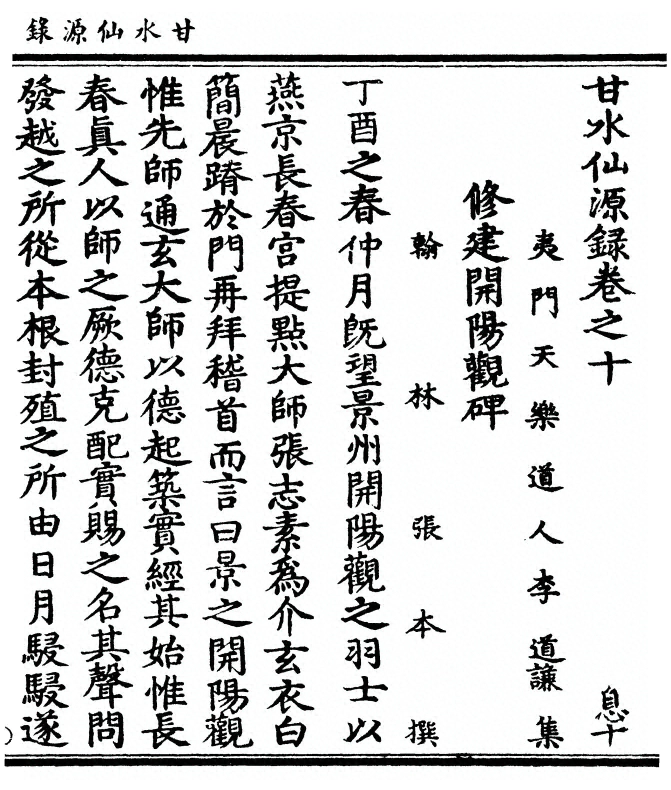 甘水仙源錄
甘水仙源録卷之十 息十
夷門天樂道人李道謙集
修建開陽觀碑
翰林張本撰
丁酉之春仲月旣望景州開陽觀之羽士以
燕京長春宮提點大師張志素爲介玄衣白
簡晨躋於門再拜稽首而言曰景之開陽觀
惟先師通玄大師以德起築實經其始惟長
春眞人以師之厥德克配實賜之名其聲問
發越之所從本根封殖之所由日月駸駸遂